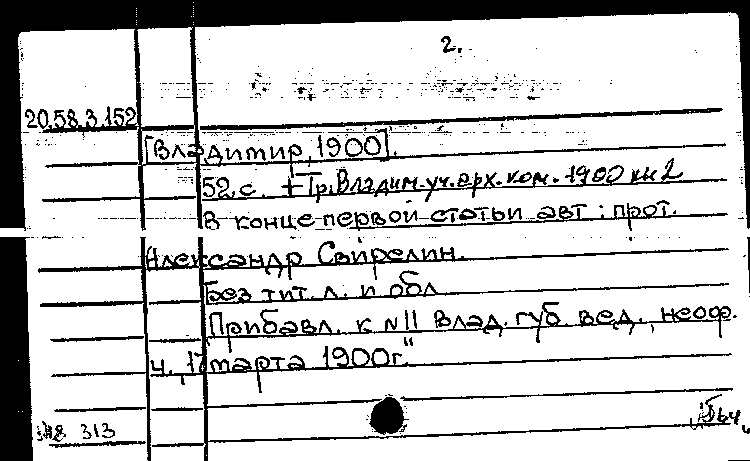 2.
20.58.3.152
[Владимир, 1900].
52 с. + Тр. Владим. уч. арх. ком. 1900 кн 2
В конце первой статьи авт: прот.
Александр Свирелин.
Без тит. л. и обл
Прибавл. к №11 Влад. губ. вед., неоф.
ч., 17 марта 1900г."
313